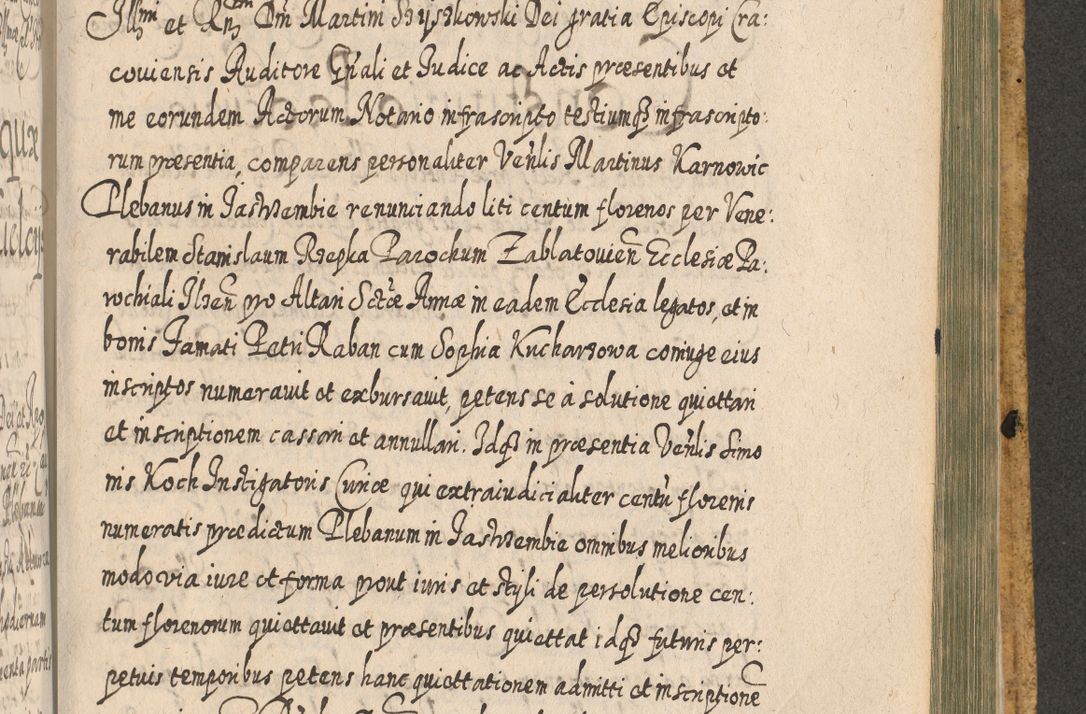 Illmi et Rmi Dni Martini Szyszkowski Dei gratia Episcopi Cra:
coviensis Auditore Gnali et Judice ac Actis præsentibus et
me eorundem Actorum Notario infrascripto testiumq3 infrascripto:
rum præsentia, comparens personaliter Venlis Martinus Karnowic
Plebanus in Jastrzembie renunciando liti centum florenos per Vene:
rabilem Stanislaum Rzepka Parochum Zablatovien Ecclesiæ Pa:
rochiali Ilzen pro Altari Sctæ Annæ in eadem Ecclesia legatos, et in
bonis Famati Petri Raban cum Sophia Kucharzowa coniuge eius
inscriptos numeravit et exbursavit, petens se à solutione quiettari
et inscriptionem cassari et annullari. Idq3 in præsentia Venlis Simo
nis Koch Instigatoris Curiæ qui extraiudicialiter centũ florenis
numeratis prædictum Plebanum in Jastrzembie omnibus melioribus
modo via iure et forma prout iuris et styli de persolutione cen:
tum florenorum quiettavit et præsentibus quiettat idq3 futuris per:
petuis temporibus petens hanc quiettationem admitti et inscriptionẽ